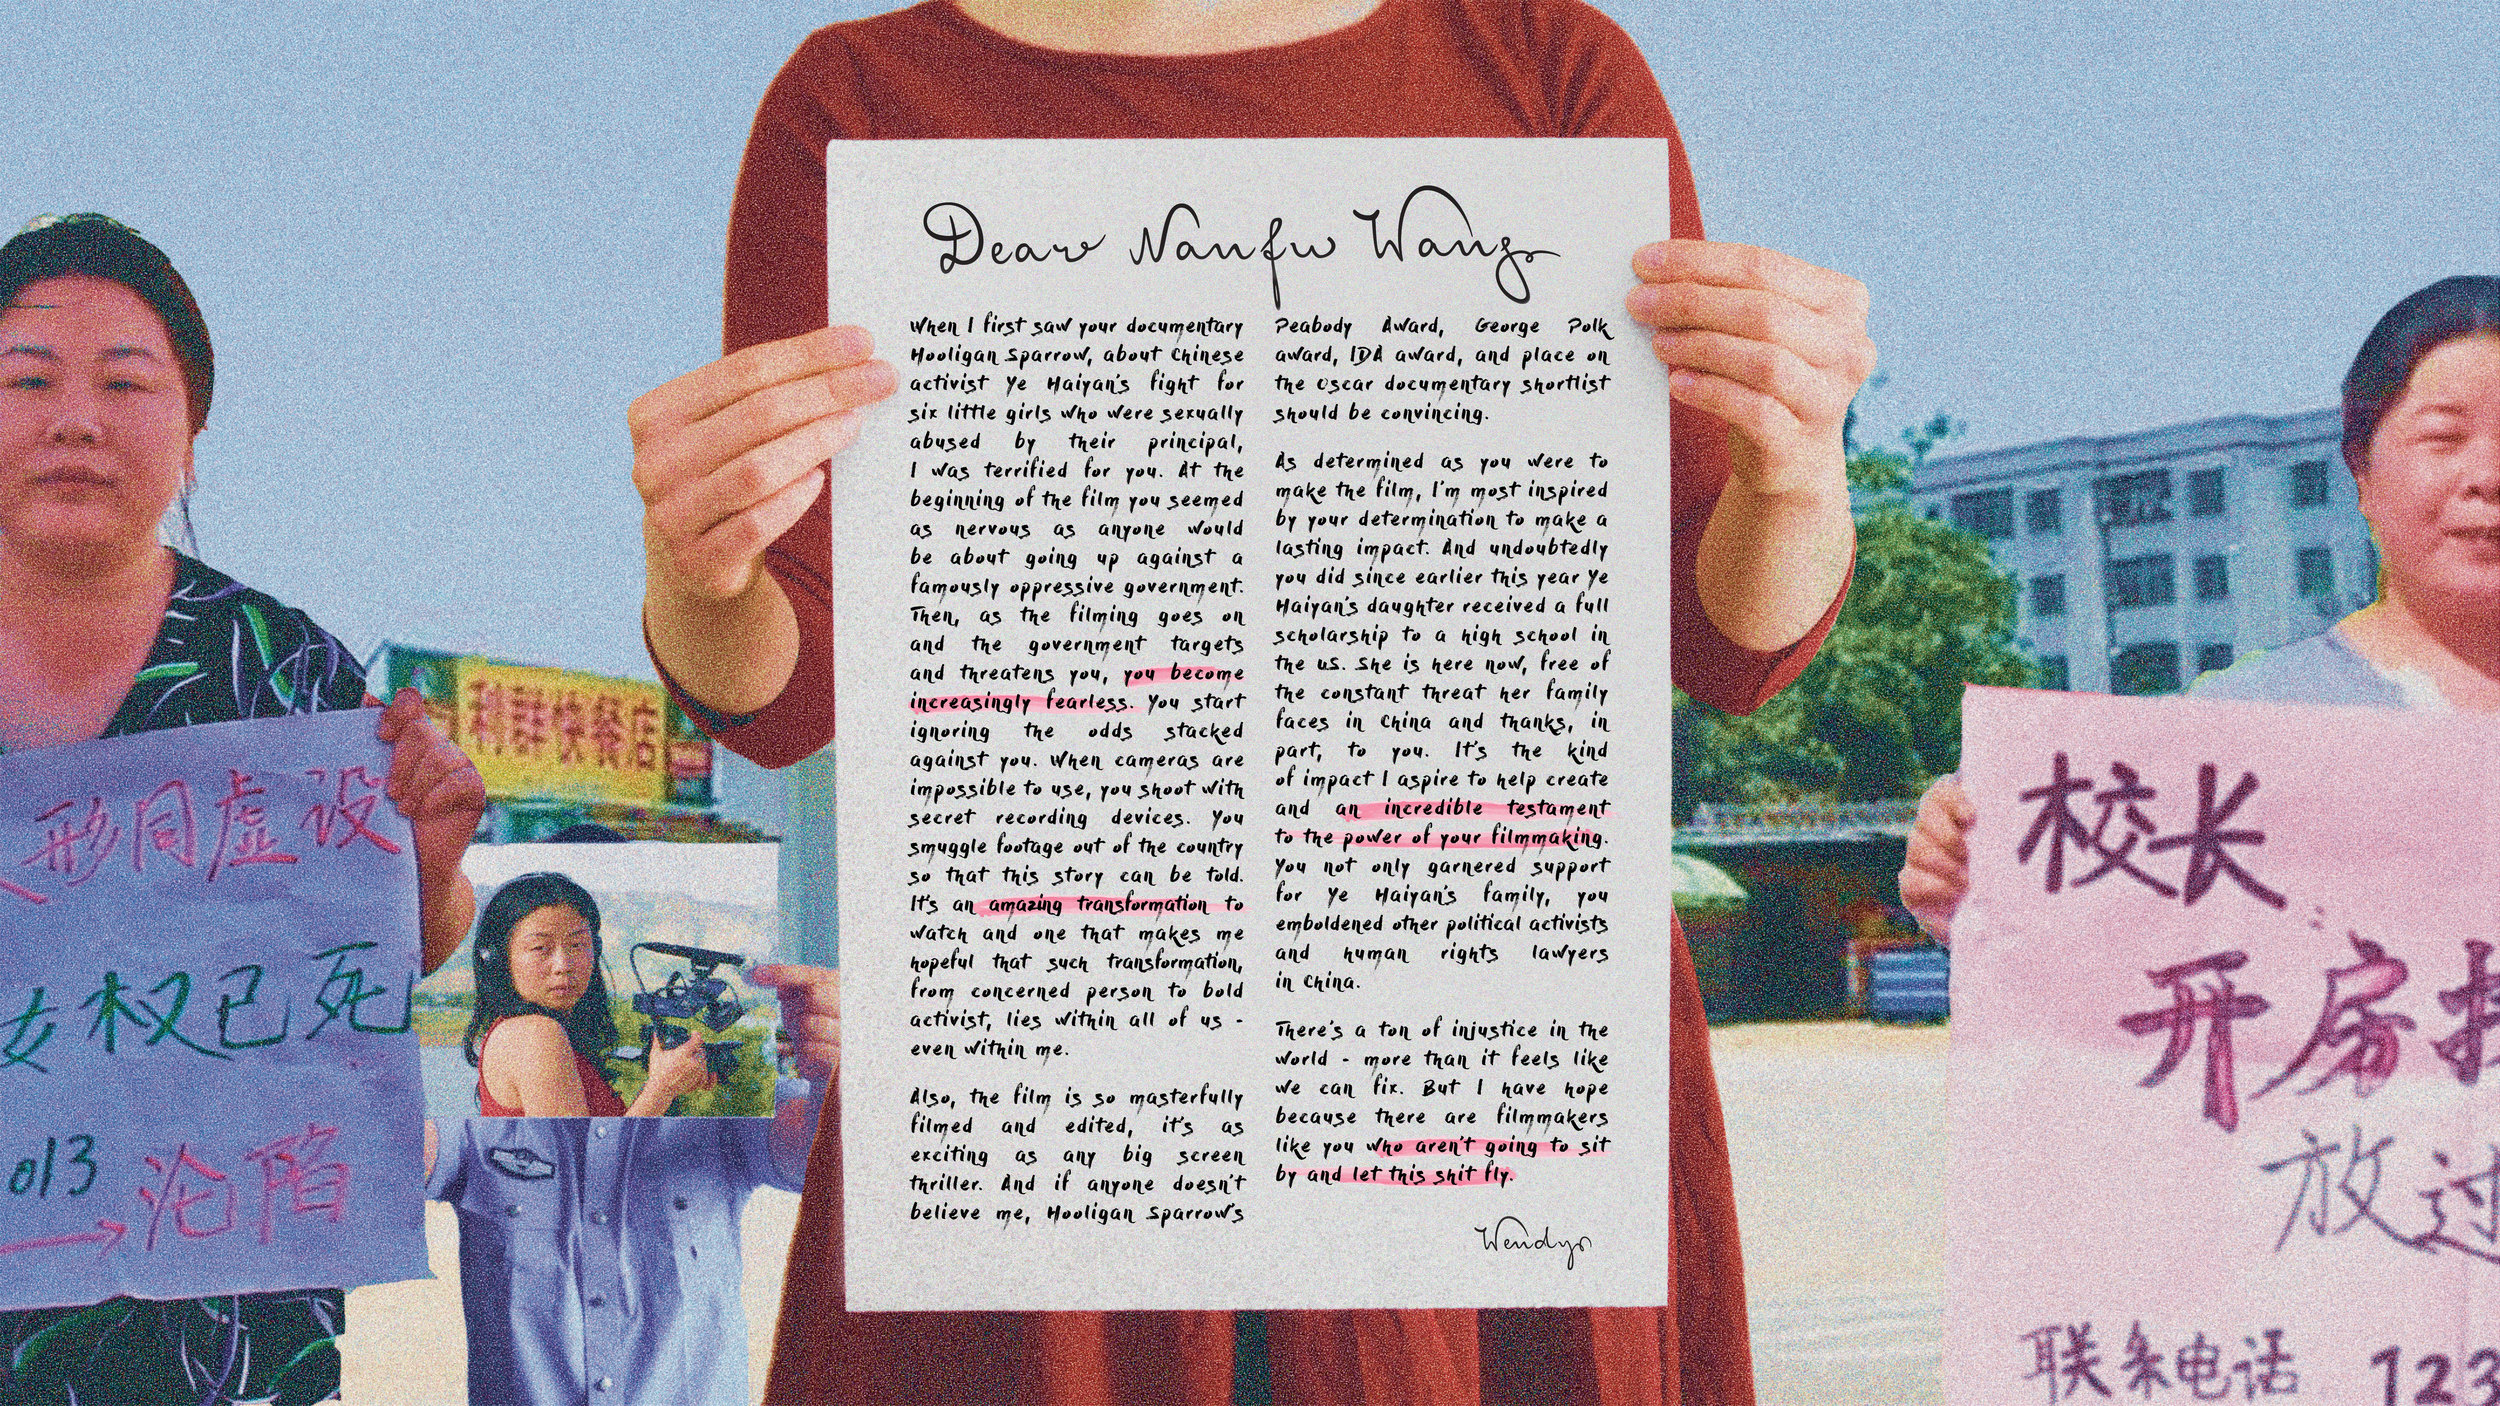 Dear Nanfu Wang
When I first saw your documentary
Hooligan Sparrow, about Chinese
activist Ye Haiyan's fight for
six little girls who were sexually
abused by their principal,
I was terrified for you. At the
beginning of the film you seemed
as nervous as anyone would
be about going up against a
famously oppressive government.
Then, as the filming goes on
and the government targets
and threatens you, you become
increasingly fearless. You start
ignoring the odds stacked
against you. When cameras are
impossible to use, you shoot with
secret recording devices. You
smuggle footage out of the country
so that this story can be told.
It's an amazing transformation to
watch and one that makes me
hopeful that such transformation,
from concerned person to bold
activist, lies within all of us -
even within me.
Also, the film is so masterfully
filmed and edited, it's as
exciting as any big screen
thriller. And if anyone doesn't
believe me, Hooligan Sparrow's
Peabody Award, George Polk
award, IDA award, and place on
the Oscar documentary shortlist
should be convincing.
As determined as you were to
make the film, I'm most inspired
by your determination to make a
lasting impact. And undoubtedly
you did since earlier this year Ye
Haiyan's daughter received a full
scholarship to a high school in
the US. She is here now, free of
the constant threat her family
faces in China and thanks, in
part, to you. It's the kind
of impact I aspire to help create
and an incredible testament
to the power of your filmmaking.
You not only garnered support
for Ye Haiyan's family, you
emboldened other political activists
and human rights lawyers
in China.
There's a ton of injustice in the
world - more than it feels like
we can fix. But I have hope
because there are filmmakers
like you who aren't going to sit
by and let this shit fly.
Wendy
形同虚设
女权已死
013
→沦陷
校长
开房找
放过
联系电话 123